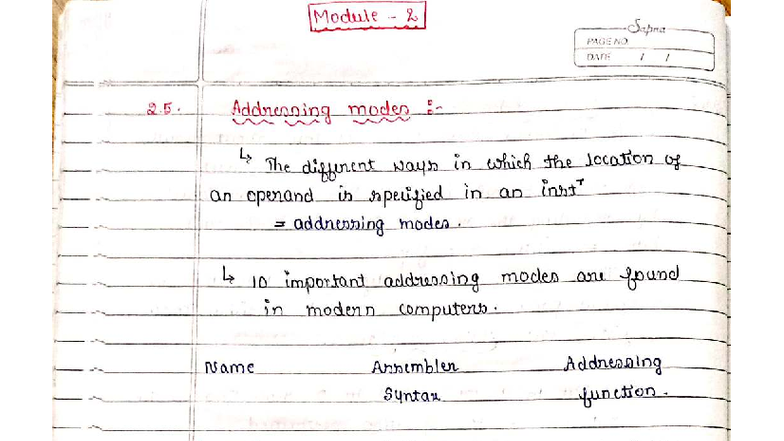 Module - 2
Sapna
PAGE NO
DATE / /
2.5. Addressing modes :-
↳ The different ways in which the location of
an operand is specified in an instⁿ
= addressing modes.
↳ 10 important addressing modes are found
in modern computers.
Name Assembler Addressing
Syntax function.